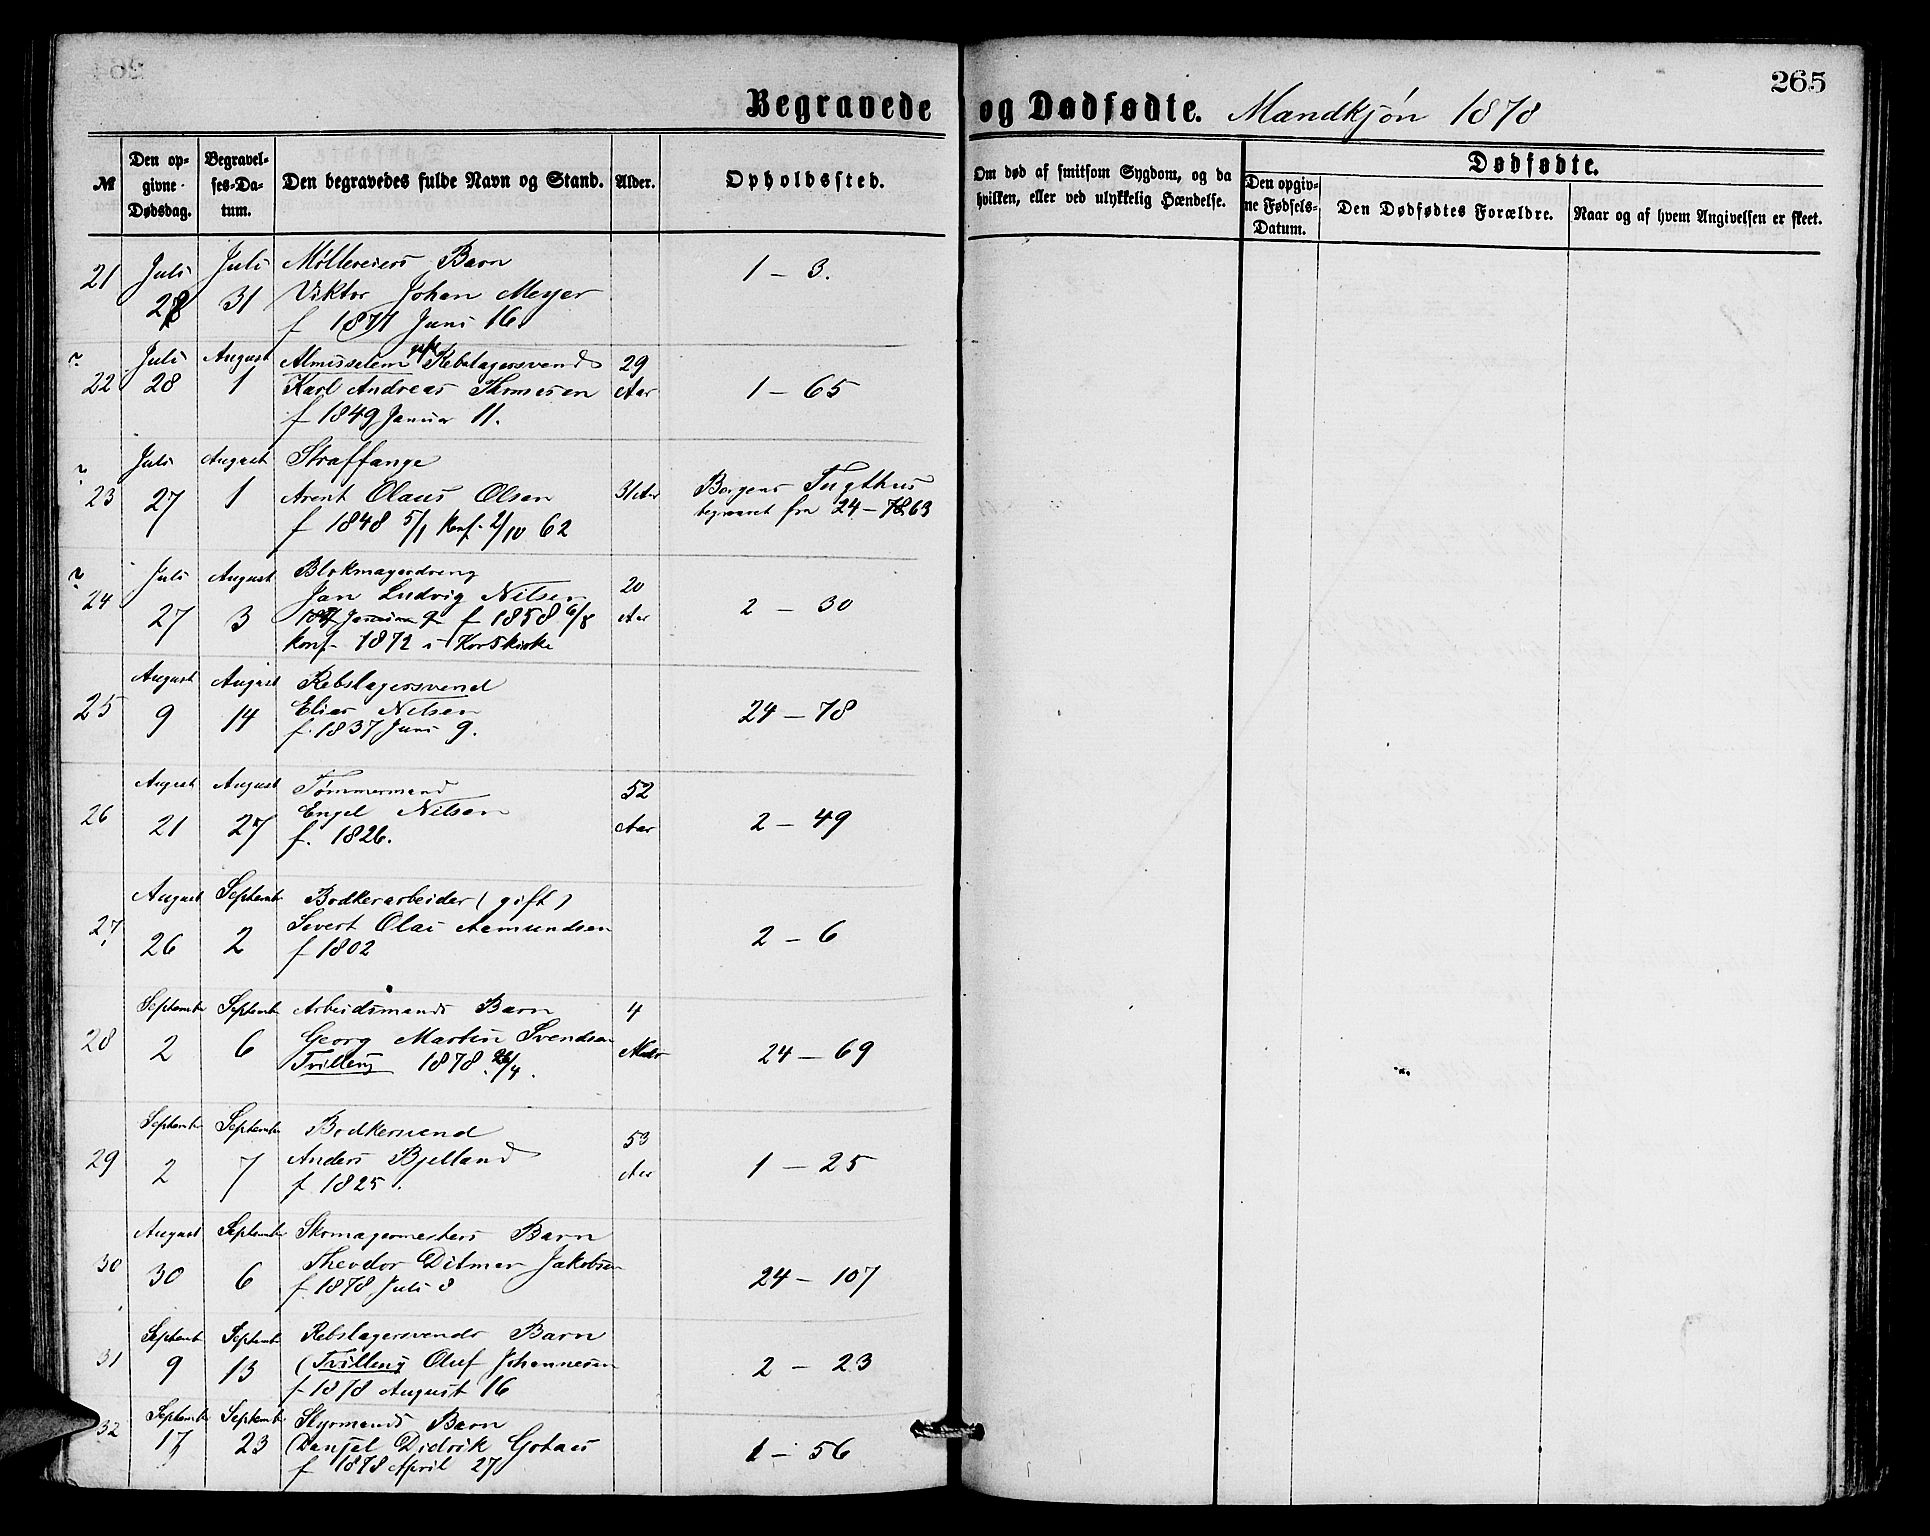 265
Begravede og Dødfødte. Mandkjøn 1878
№
Den opgivne Dødsdag.
Begravelses-Datum.
Den begravedes fulde Navn og Stand.
Alder.
Opholdssted.
Om død af smitsom Sygdom, og da hvilken, eller ved ulykkelig Hændelse.
Dødfødte.
Den opgivne Fødsels-Datum.
Den Dødfødtes Forældre.
Naar og af hvem Angivelsen er skeet.
21 Juli 28 Juli 31 Møllereiers Barn
Viktor Johan Meyer
f 1877 Juni 16
1 – 3.
22 Juli 28 August 1 Almisselem Rebslagersvend
Karl Andreas Thomesen
f 1849 Januar 11.
29 Aar
1 – 65
23 Juli 27 August 1 Straffange
Arent Olaus Olsen
f 1848 5/1 Konf. 2/10 62
31 Aar
Bergens Tugthus
begravet fra 24 – 63
24 Juli 27 August 3 Blokmagerdreng
Jan Ludvig Nilsen
f 1858 6/8
Konf. 1872 i Korskirke
20 Aar
2 – 30
25 August 9 August 14 Rebslagersvend
Elias Nilsen
f. 1837 Juni 9.
24 – 78
26 August 21 August 27 Tømmermand
Engel Nilsen
f. 1826.
52 Aar
2 – 49
27 August 26 September 2 Bødkerarbeider (gift)
Sivert Olai Aamundsen
f 1802
2 – 6
28 September 2 September 6 Arbeidsmands Barn
Georg Martin Svendsen
Tvilling 1878 26/4.
4 Mdr
24 – 69
29 September 2 September 7 Bødkersvend
Anders Bjelland
f 1825.
53 Aar
1 – 25
30 August 30 September 6 Skomagermesters Barn
Theodor Ditmar Jakobsen
f. 1878 Juli 8
24 – 107
31 September 9 September 13 Rebslagersvends Barn
(Tvilling) Oluf Johannesen
f 1878 August 16
2 – 23
32 September 17 September 23 Styrmands Barn
Daniel Didrik Gotaas
f 1878 April 27
1 – 56